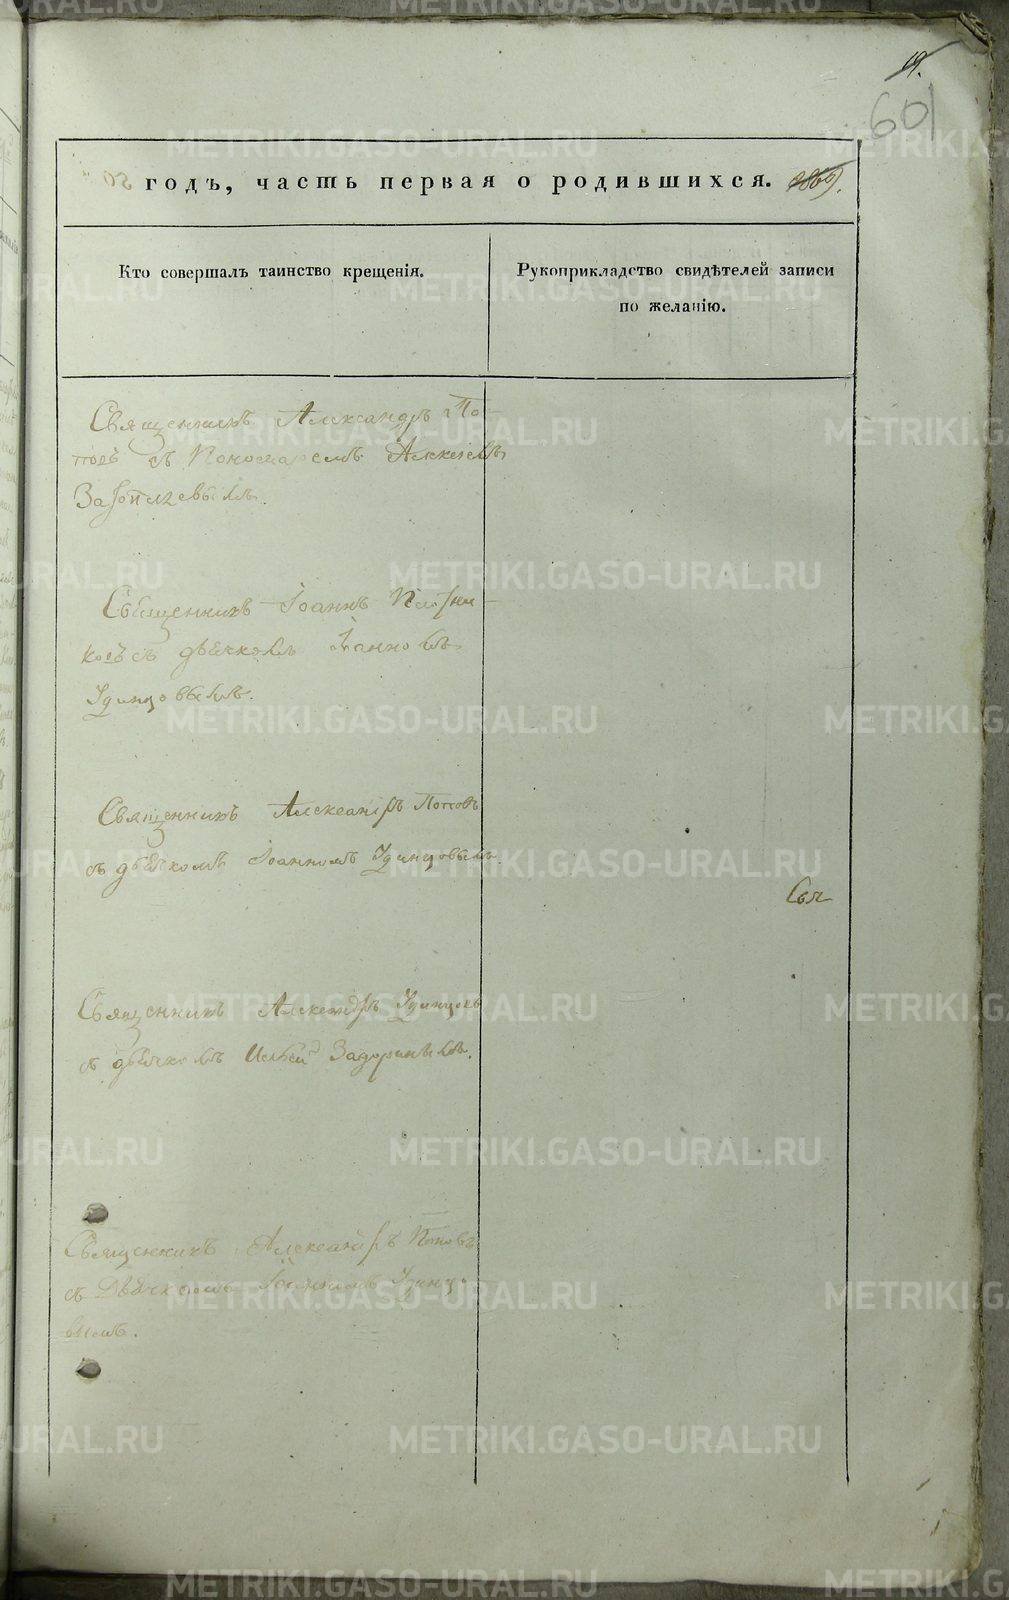 19.
601
годъ, часть первая о родившихся.
Кто совершалъ таинство крещенія.
Рукоприкладство свидѣтелей записи
по желанію.
Священникъ Александръ По-
повъ съ Пономаремъ Алексѣемъ
Священникъ Іоаннъ Плотни-
ковъ съ дьячкомъ Іанномъ
Удинцовымъ.
Священникъ Александръ Поповъ
съ дьячкомъ Іоанномъ Удинцовымъ
Свя
Священникъ Александръ Удинцовъ
съ дьячкомъ Задоринымъ.
Священникъ Александръ Поповъ
съ Дьячкомъ Іоанномъ Удинцо-
вымъ.
METRIKI.GASO-URAL.RU